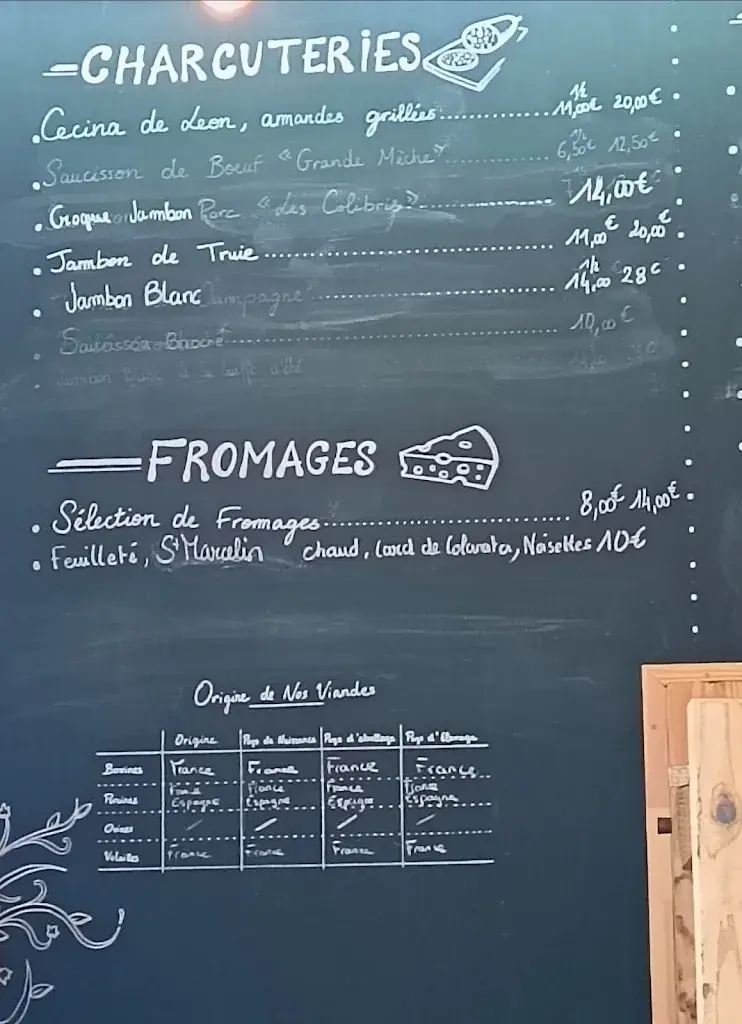 CHARCUTERIES
Cecina de Leon, amandes grillées 1/2 11,00€ 20,00€
Saucisson de Boeuf "Grande Mèche" 6,50€ 12,50€
Croque Jambon Porc "Les Colibris" 14,00€
Jambon de Truie 11,00€ 20,00€
Jambon Blanc 1/2 14,00 28€
Brioché 10,00€
Jambon Blanc à la
FROMAGES
Sélection de Fromages 8,00€ 14,00€
Feuilleté, St Marcelin chaud, Lard de Colonata, Noisettes 10€
Origine de Nos Viandes
Origine Pays de Naissance Pays d'abattage Pays d'élevage
Bovines France France France France
Porcines France Espagne France Espagne France Espagne France Espagne
Ovines / / / /
Volailles France France France France